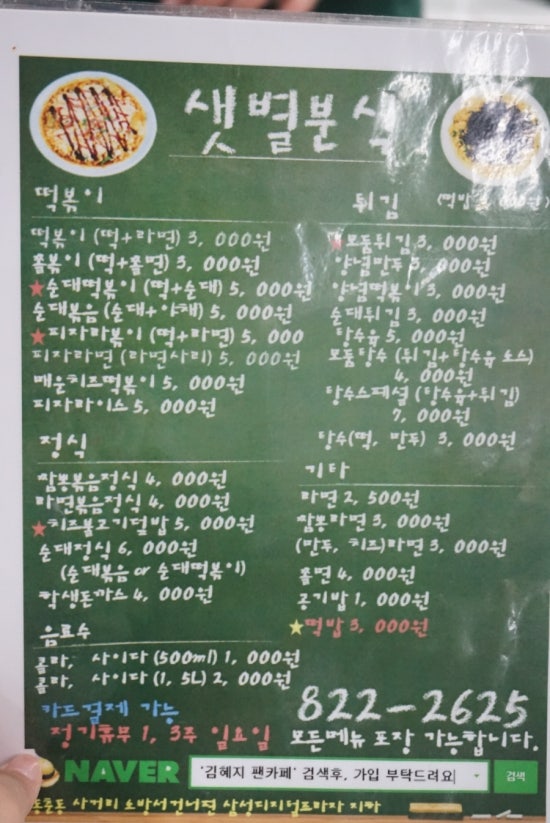 샛별분식
떡볶이
떡볶이 (떡+라면) 3, 000원
쫄볶이 (떡+쫄면) 3, 000원
★순대떡볶이 (떡+순대) 5, 000원
순대볶음 (순대+야채) 5, 000원
★피자라볶이 (떡+라면) 5, 000
피자라면 (라면사리) 5, 000원
매운치즈떡볶이 5, 000원
피자라이스 5, 000원
정식
짬뽕볶음정식 4, 000원
라면볶음정식 4, 000원
★치즈불고기덮밥 5, 000원
순대정식 6, 000원
(순대볶음 or 순대떡볶이)
학생돈까스 4, 000원
음료수
콜라, 사이다 (500ml) 1, 000원
콜라, 사이다 (1, 5L) 2, 000원
카드결제 가능
정기휴무 1, 3주 일요일
튀김 (떡밥 000원)
★모둠튀김 3, 000원
양념만두 3, 000원
양념떡볶이 3, 000원
순대튀김 3, 000원
탕수육 5, 000원
모둠탕수 (튀김+탕수육 소스)
4, 000원
탕수스페셜 (탕수육+튀김)
7, 000원
탕수(떡, 만두) 3, 000원
기타
라면 2, 500원
짬뽕라면 3, 000원
(만두, 치즈)라면 3, 000원
쫄면 4, 000원
공기밥 1, 000원
★떡밥 3, 000원
822-2625
모든메뉴 포장 가능합니다.
NAVER '김혜지 팬카페' 검색후, 가입 부탁드려요 검색
동춘동 사거리 소방서건너편 삼성디지털프라자 지하